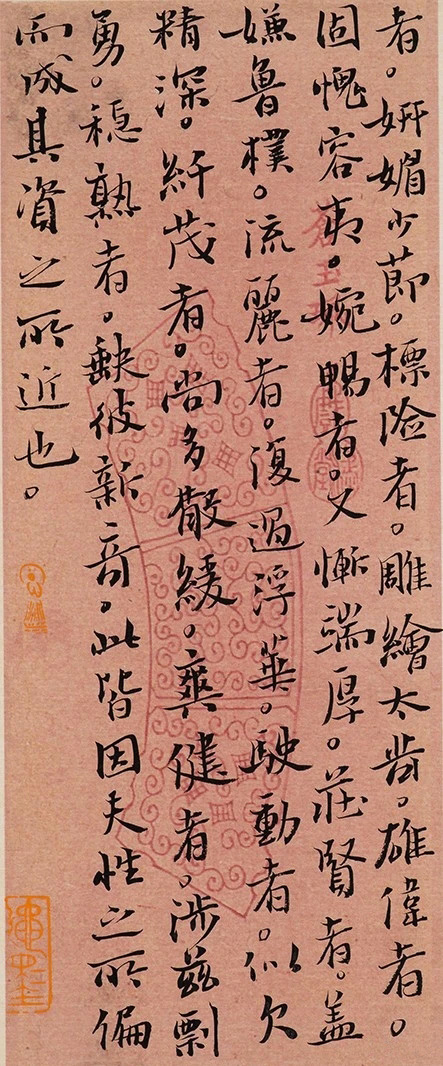 者。妍媚少節。標险者。雕繪太苛。雄偉者。
固愧容夷。婉暢者。又慚端厚。莊賢者。盖
嫌魯樸。流麗者。復過浮華。駛動者。似欠
精深。纤茂者。尚多散緩。爽健者。涉兹剽
勇。穩熟者。缺彼新奇。此皆因夫性之所偏
而成其資之所近也。